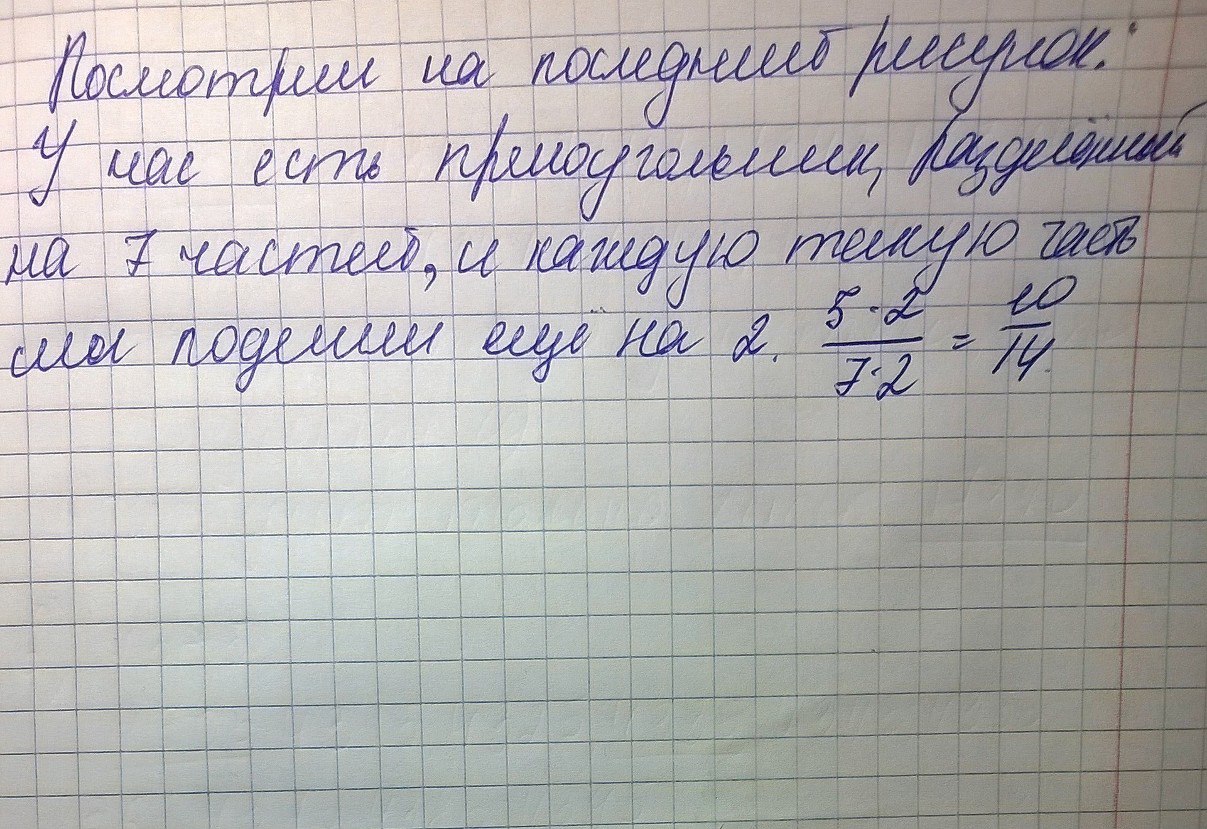 Посмотрим на последний рисунок.
У нас есть прямоугольник, разделённый
на 7 частей, и каждую такую часть
мы поделим ещё на 2. 5·2/7·2 = 10/14.